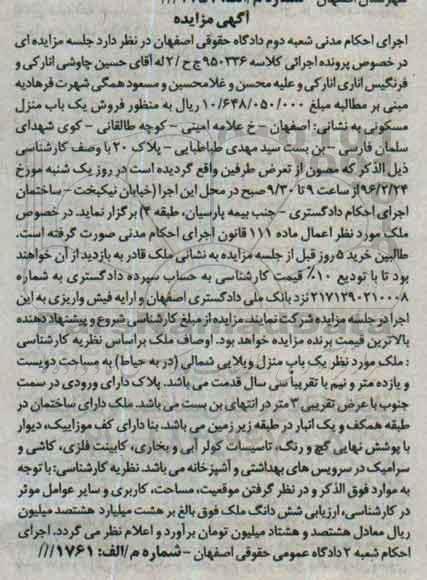 آگهی مزایده
اجرای احکام مدنی شعبه دوم دادگاه حقوقی اصفهان در نظر دارد جلسه مزایده ای
در خصوص پرونده اجرائی کلاسه ۹۵۰۳۳۶ ج ح / ۲ له آقای حسین چاوشی انارکی و
فرنگیس اناری انارکی و علیه محسن و غلامحسین و مسعود همگی شهرت فرهادیه
مبنی بر مطالبه مبلغ ۱۰/۶۴۸/۰۵۰/۰۰۰ ریال به منظور فروش یک باب منزل
مسکونی به نشانی: اصفهان - خ علامه امینی - کوچه طالقانی - کوی شهدای
سلمان فارسی - بن بست سید مهدی طباطبایی - پلاک ۲۰ با وصف کارشناسی
ذیل الذکر که مصون از تعرض طرفین واقع گردیده است در روز یک شنبه مورخ
۹۶/۲/۲۴ از ساعت ۹ تا ۹/۳۰ صبح در محل این اجرا (خیابان نیکبخت - ساختمان
اجرای احکام دادگستری - جنب بیمه پارسیان، طبقه ۳) برگزار نماید. در خصوص
ملک مورد نظر اعمال ماده ۱۱۱ قانون اجرای احکام مدنی صورت گرفته است.
طالبین خرید ۵ روز قبل از جلسه مزایده به نشانی ملک قادر به بازدید از آن خواهند
بود تا با تودیع ۱۰٪ قیمت کارشناسی به حساب سپرده دادگستری به شماره
۲۱۷۱۲۹۰۲۱۰۰۰۸ نزد بانک ملی دادگستری اصفهان و ارایه فیش واریزی به این
اجرا در جلسه مزایده شرکت نمایند. مزایده از مبلغ کارشناسی شروع و پیشنهاد دهنده
بالاترین قیمت برنده مزایده خواهد بود. اوصاف ملک براساس نظریه کارشناسی
: ملک مورد نظر یک باب منزل ویلایی شمالی (در به حیاط) به مساحت دویست
و یازده متر و نیم با تقریبا سی سال قدمت می باشد. پلاک دارای ورودی در سمت
جنوب با عرض تقریبی ۳ متر در انتهای بن بست می باشد. ملک دارای ساختمان در
طبقه همکف و یک انبار در طبقه زیر زمین می باشد. بنا دارای کف موزاییک، دیوار
با پوشش نهایی گچ و رنگ، تاسیسات کولر آبی و بخاری، کابینت فلزی، کاشی و
سرامیک در سرویس های بهداشتی و آشپزخانه می باشد. نظریه کارشناسی: با توجه
به موارد فوق الذکر و در نظر گرفتن موقعیت، مساحت، کاربری و سایر عوامل موثر
در کارشناسی، ارزیابی شش دانگ ملک فوق بالغ بر هشت میلیارد هشتصد میلیون
ریال معادل هشتصد و هشتاد میلیون تومان برآورد و اعلام نظر می گردد. اجرای
احکام شعبه ۲ دادگاه عمومی حقوقی اصفهان - شماره م/الف: ۱۷۶۱///